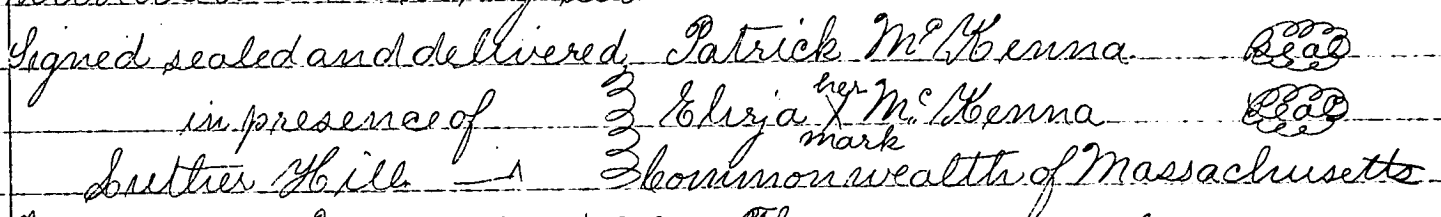 Signed sealed and delivered Patrick McKenna Seal
in presence of Eliza her X mark McKenna Seal
Luther Hill Commonwealth of Massachusetts